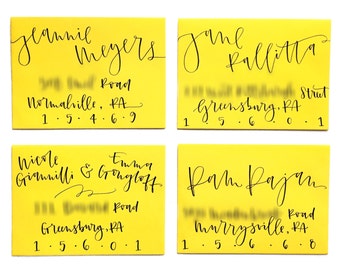 Jeannie
Meyers
Road
Normalville, PA
1 · 5 · 4 · 6 · 9
Jane
Pallitta
Street
Greensburg, PA
1 5 6 0 1
Nicole Emma
Giannilli & Gongloff
Road
Greensburg, PA
1 · 5 · 6 · 0 · 1
Pam Rajan
Road
Murrysville, PA
1 · 5 · 6 · 6 · 8